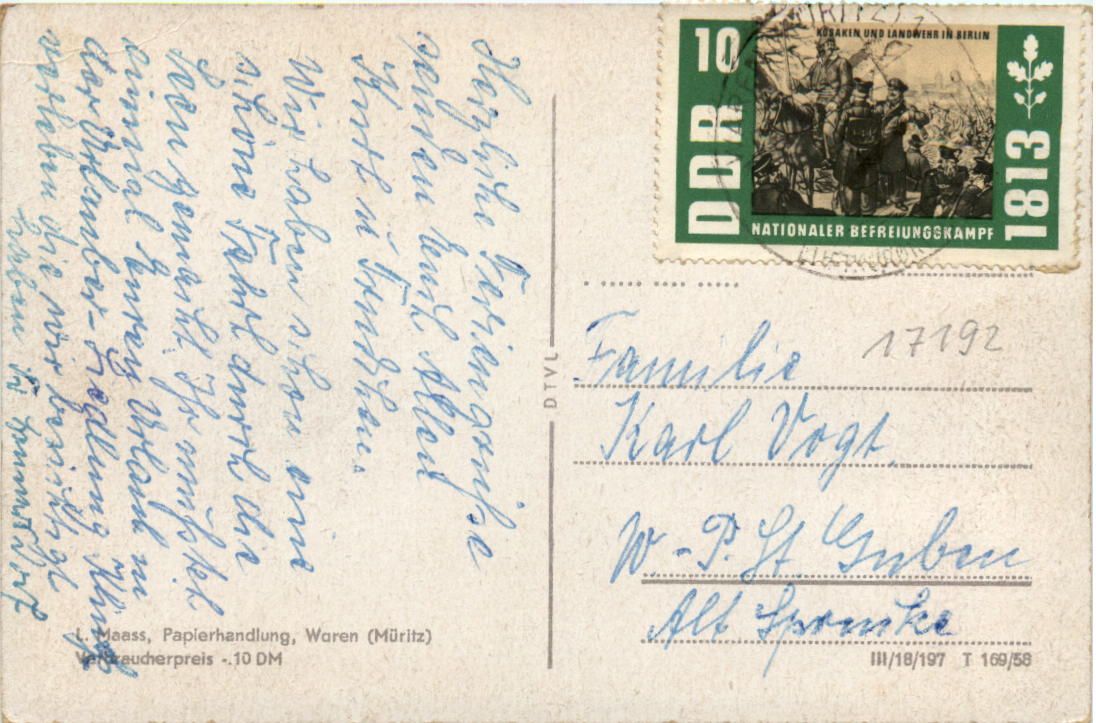 Herzliche Feriengrüße
senden Euch allen
Kurt u.
Wir haben schon eine
schöne Fahrt durch die
Seen gemacht. Ihr müßtet
einmal Euren Urlaub in
der Urlauber-Siedlung Klink
verleben die wir besichtigt
haben
L. Maass, Papierhandlung, Waren (Müritz)
Verbraucherpreis -.10 DM
DTVL
DDR 10
KOSAKEN UND LANDWEHR IN BERLIN
1813
NATIONALER BEFREIUNGSKAMPF
17192
Familie
Karl Vogt
W.-P. St. Guben
Alt Sprucke
III/18/197 T 169/58